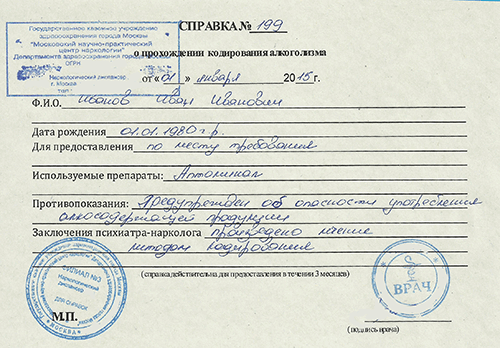 Государственное казенное учреждение
здравоохранения города Москвы
"Московский научно-практический
центр наркологии"
Департамента здравоохранения города
ОГРН
Наркологический диспансер
г. Москва
СПРАВКА № 199
о прохождении кодирования алкоголизма
от «01» января 2015 г.
Ф.И.О. Иванов Иван Иванович
Дата рождения 01.01.1980 г.р.
Для предоставления по месту требования
Используемые препараты:
Противопоказания: Предупрежден об опасности употребления
алкосодержащей продукции
Заключения психиатра-нарколога произведено лечение
методом кодирования
(справка действительна для предоставления в течении 3 месяцев)
ФИЛИАЛ №3
Наркологический
диспансер
ДЛЯ СПРАВОК
МОСКВА
М.П.
ВРАЧ
(подпись врача)